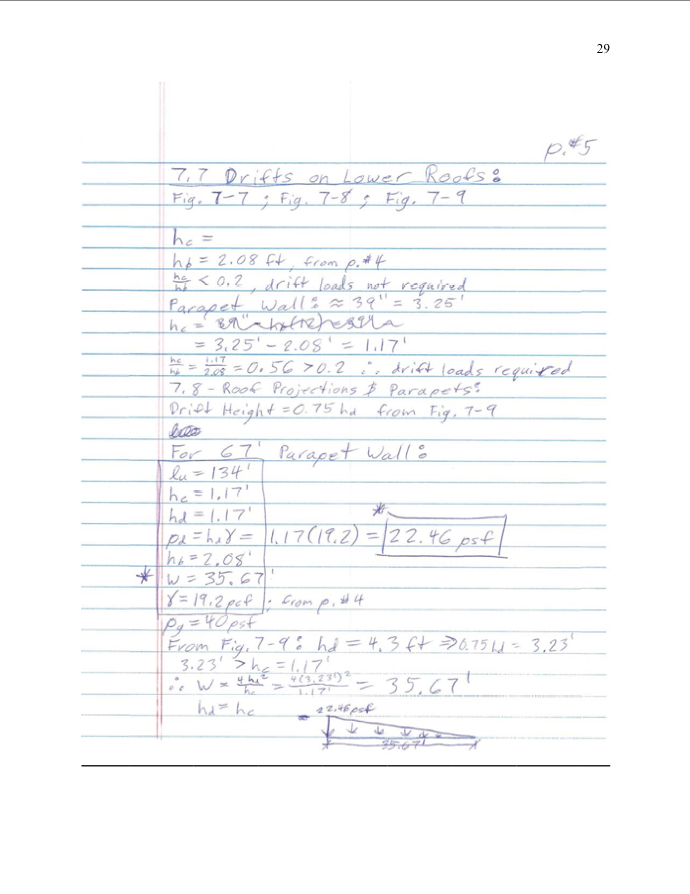 29
p.#5
7.7 Drifts on Lower Roofs:
Fig. 7-7 ; Fig. 7-8 ; Fig. 7-9
hc =
hb = 2.08 ft, from p.#4
hc/hb < 0.2, drift loads not required
Parapet Wall: ≈ 39" = 3.25'
hc =
= 3.25' - 2.08' = 1.17'
hc/hb = 1.17/2.08 = 0.56 > 0.2 ∴ drift loads required
7.8 - Roof Projections & Parapets:
Drift Height = 0.75 hd from Fig. 7-9
For 67' Parapet Wall:
lu = 134'
hc = 1.17'
hd = 1.17'
pd = hdγ = 1.17(19.2) = 22.46 psf
*
hb = 2.08'
* W = 35.67'
γ = 19.2 pcf ; from p.#4
pg = 40 psf
From Fig. 7-9: hd = 4.3 ft ⇒ 0.75 hd = 3.23'
3.23' > hc = 1.17'
∴ W = 4hd²/hc = 4(3.23')²/1.17' = 35.67'
hd = hc
22.46 psf
35.67'